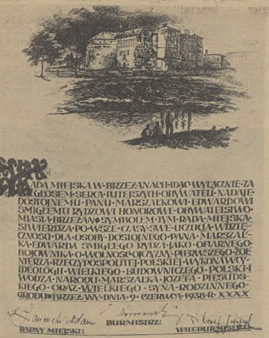 RADA MIEJSKA W BRZEŻANACH IDĄC WYŁĄCZNIE ZA
GŁOSEM SERCA TUTEJSZYCH OBYWATELI NADAJE
DOSTOJNEMU PANU MARSZAŁKOWI EDWARDOWI
ŚMIGŁEMU RYDZOWI HONOROWE OBYWATELSTWO
MIASTA BRZEŻAN SYMBOLEM TYM RADA MIEJSKA
STWIERDZA PO WSZE CZASY SWE UCZUCIA WDZIĘ
CZNOŚCI DLA OSOBY DOSTOJNEGO PANA MARSZAŁ
KA EDWARDA ŚMIGŁEGO RYDZA JAKO OFIARNEGO
BOJOWNIKA O WOLNOŚĆ OJCZYZNY PIERWSZEGO ŻOŁ
NIERZA RZECZYPOSPOLITEJ POLSKIEJ WYKONAWCY
IDEOLOGII WIELKIEGO BUDOWNICZEGO POLSKI I
WODZA NARODU MARSZAŁKA JÓZEFA PIŁSUDS
KIEGO ORAZ WIELKIEGO SYNA RODZINNEGO
GRODU BRZEŻANY DNIA 9 CZERWCA 1938 R. XXXX
RADNY MIEJSKI: BURMISTRZ: WICEBURMISTRZ: